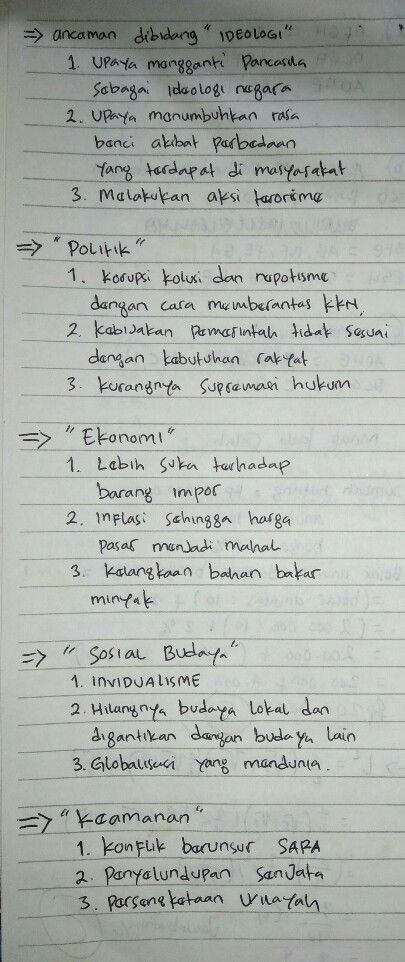 => ancaman dibidang "IDEOLOGI"
1. Upaya mengganti Pancasila
sebagai ideologi negara
2. Upaya menumbuhkan rasa
benci akibat perbedaan
yang terdapat di masyarakat
3. Melakukan aksi terorisme
=> "Politik"
1. Korupsi kolusi dan nepotisme
dengan cara memberantas KKN,
2. Kebijakan pemerintah tidak sesuai
dengan kebutuhan rakyat
3. Kurangnya supremasi hukum
=> "Ekonomi"
1. Lebih suka terhadap
barang impor
2. Inflasi sehingga harga
pasar menjadi mahal
3. Kelangkaan bahan bakar
minyak
=> "Sosial Budaya"
1. INVIDUALISME
2. Hilangnya budaya lokal dan
digantikan dengan budaya lain
3. Globalisasi yang mendunia.
=> "Keamanan"
1. Konflik berunsur SARA
2. Penyelundupan senjata
3. Persengketaan wilayah